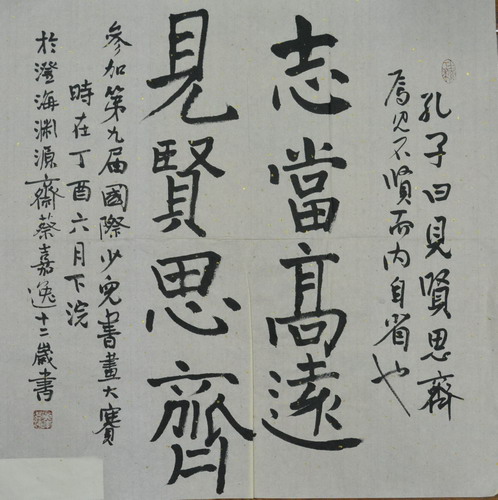 孔子曰見賢思齊
焉見不賢而内自省也
志當高遠
見賢思齊
參加第九届國際少兒書畫大賽
時在丁酉六月下浣
於澄海淵源齋蔡嘉逸十二歲書